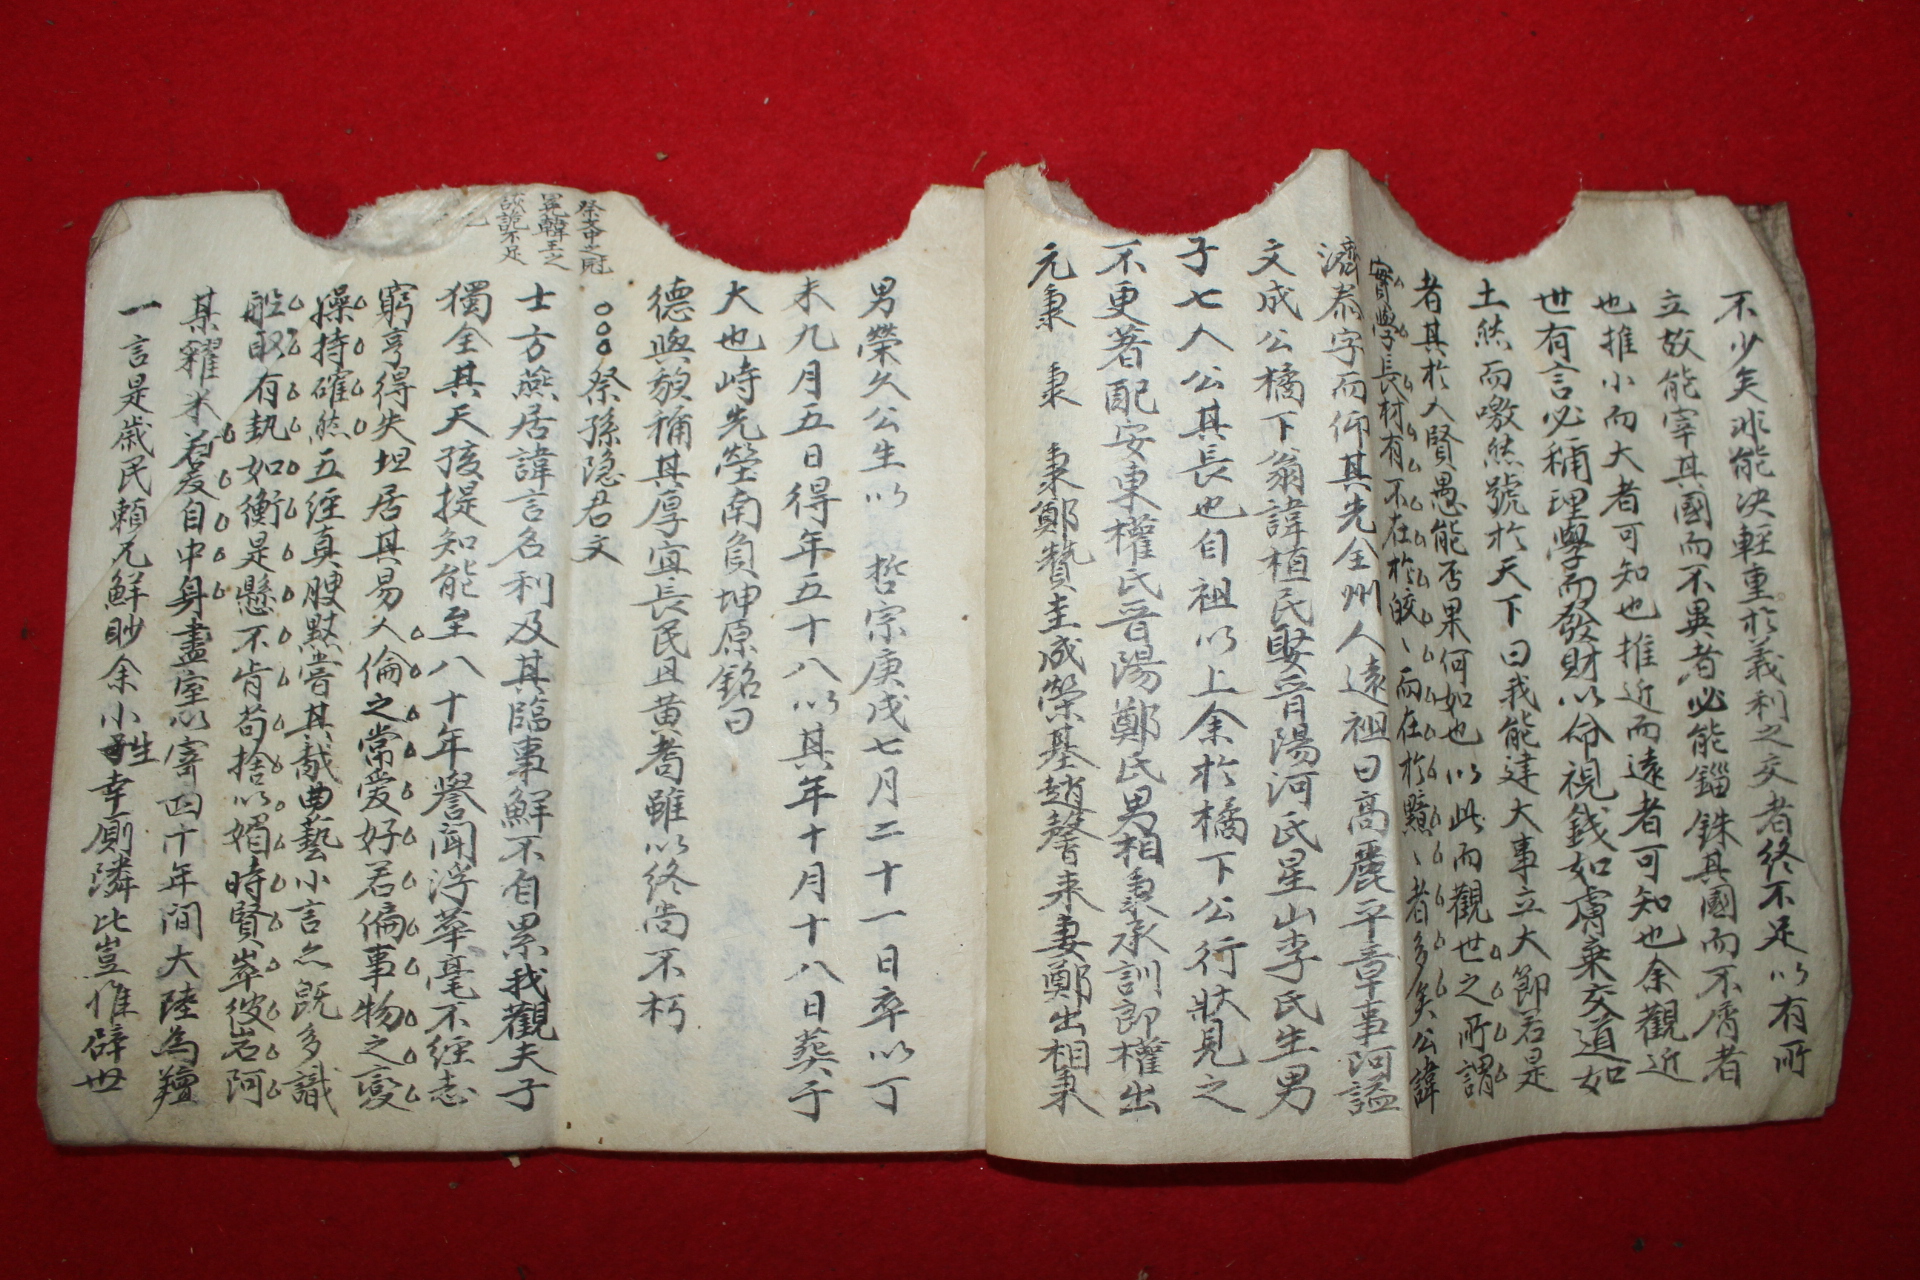 不少矣非能決輕重於義利之交者終不足以有所
立故能宰其國而不異者必能錙銖其國而不屑者
也推小而大者可知也推近而遠者可知也余觀近
世有言必稱理學而發財以命視錢如膚棄交道如
土然而噭然號於天下曰我能建大事立大節若是
者其於人賢愚能否果何如也以此而觀世之所謂
實學長材有不在於皎、而在於黯、者多矣公諱
濟泰字而仰其先全州人遠祖曰高麗平章事阿謚
文成公橘下翁諱植民娶晋陽河氏星山李氏生男
子七人公其長也自祖以上余於橘下公行狀見之
不更著配安東權氏晋陽鄭氏男相秉承訓郎權出
元秉 秉 秉鄭贊圭成榮基趙馨來妻鄭出相秉
男榮久公生以 哲宗庚戌七月二十一日卒以丁
未九月五日得年五十八以其年十月十八日葬于
大也峙先塋南負坤原銘曰
德與貌稱其厚宜長民且黄耈雖以終尚不朽
祭文中之冠
冕韓王之
詼詭不足
祭孫隐君文
士方燕居諱言名利及其臨事鮮不自累我觀夫子
獨全其天孩提知能至八十年譽聞浮華毫不經志
窮亨得失坦居其易人倫之常愛好若偏事物之變
操持確然五經真腴默嘗其胾曲藝小言亦既多識
船取有執如衡是懸不肯苟捨以媚時賢崒彼岩阿
某糴米若爰自中身盡室以寄四十年間大陸為羶
一言是葴民頼尤鮮眇余小生幸厠隣比豈惟辟世